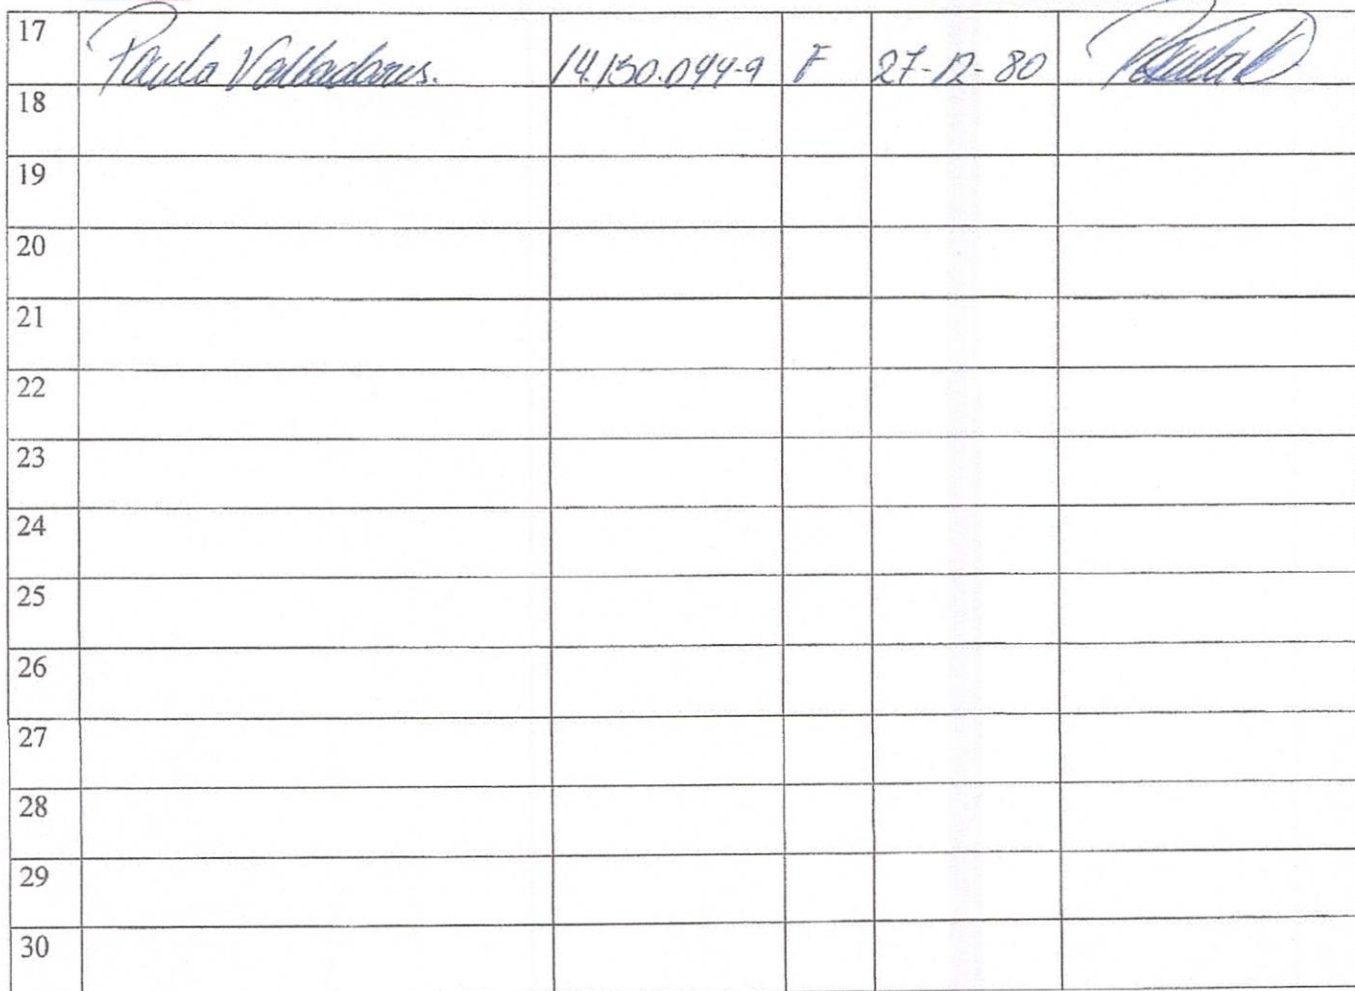 17 Paula Valladares. 14.150.044-9 F 27-12-80
18
19
20
21
22
23
24
25
26
27
28
29
30